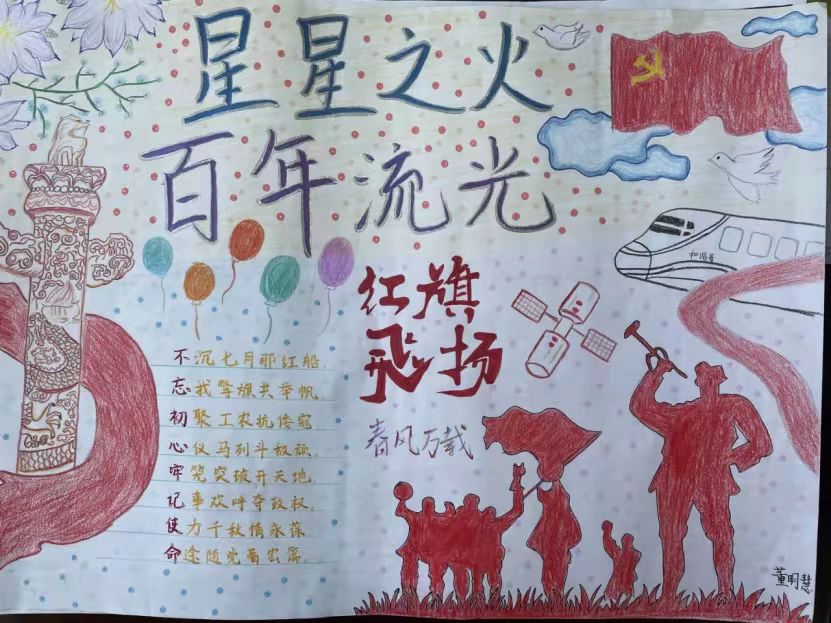 星星之火
百年流光
和谐号
红旗
飞扬
春风万载
不沉七月那红船
忘我擎旗共举帆
初聚工农抗倭寇
心仪马列斗敌顽.
牢笼突破开天地
记事欢呼夺政权.
使力千秋情永葆
命途随党著宏篇.
董明慧